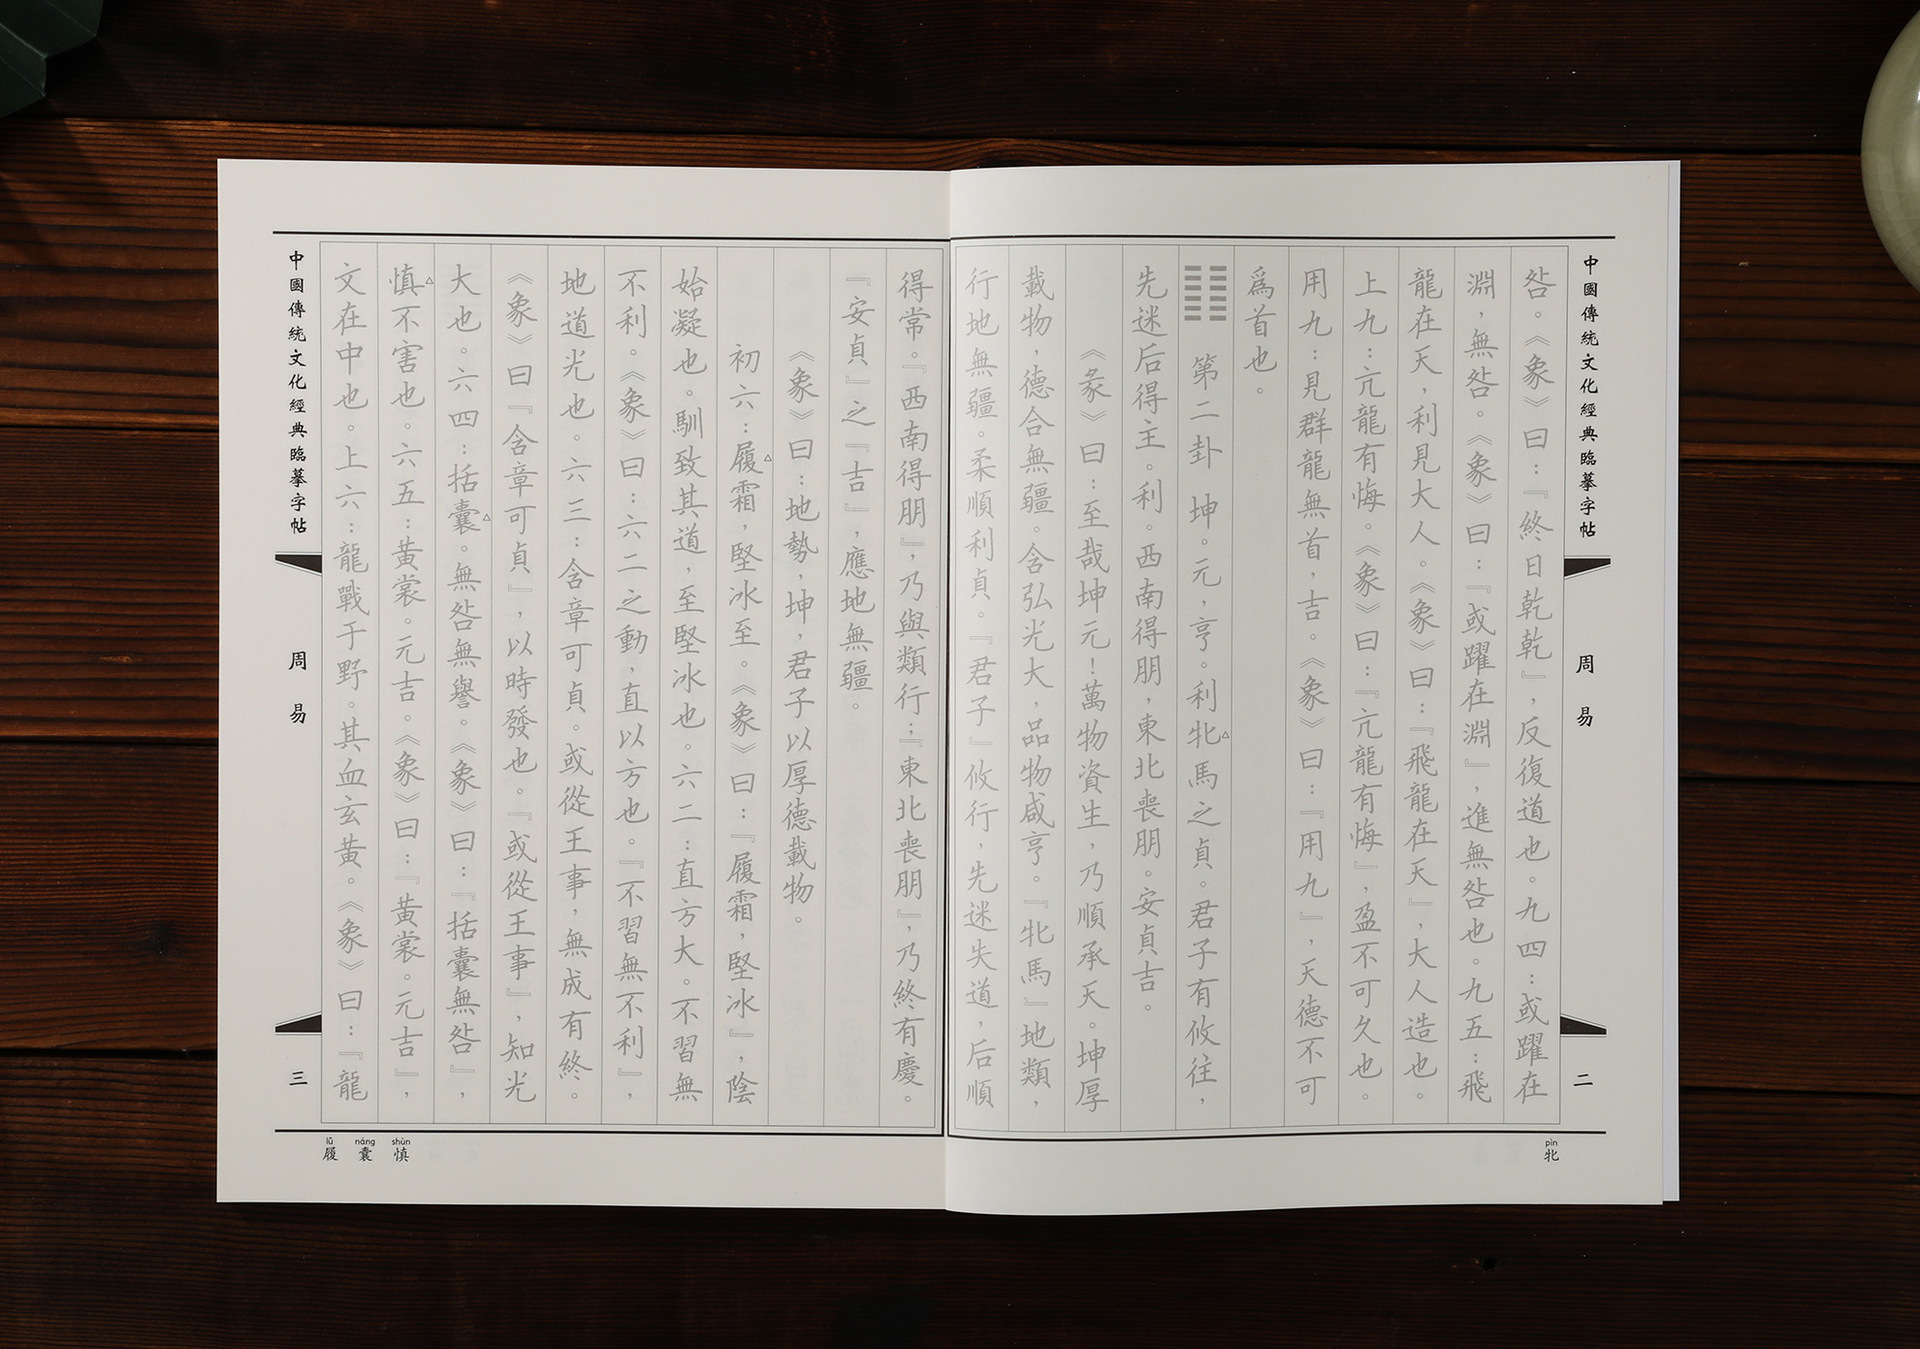 中國傳統文化經典臨摹字帖
周易
二
咎。《象》曰：『終日乾乾』，反復道也。九四：或躍在
淵，無咎。《象》曰：『或躍在淵』，進無咎也。九五：飛
龍在天，利見大人。《象》曰：『飛龍在天』，大人造也。
上九：亢龍有悔。《象》曰：『亢龍有悔』，盈不可久也。
用九：見群龍無首，吉。《象》曰：『用九』，天德不可
爲首也。
第二卦 坤。元，亨。利牝馬之貞。君子有攸往，
先迷后得主。利。西南得朋，東北喪朋。安貞吉。
《彖》曰：至哉坤元！萬物資生，乃順承天。坤厚
載物，德合無疆。含弘光大，品物咸亨。『牝馬』地類，
行地無疆。柔順利貞。『君子』攸行，先迷失道，后順
pìn
牝
得常。『西南得朋』，乃與類行；『東北喪朋』，乃終有慶。
『安貞』之『吉』，應地無疆。
《象》曰：地勢，坤，君子以厚德載物。
初六：履霜，堅冰至。《象》曰：『履霜，堅冰』，陰
始凝也。馴致其道，至堅冰也。六二：直方大。不習無
不利。《象》曰：六二之動，直以方也。『不習無不利』，
地道光也。六三：含章可貞。或從王事，無成有終。
《象》曰『含章可貞』，以時發也。『或從王事』，知光
大也。六四：括囊。無咎無譽。《象》曰：『括囊無咎』，
慎不害也。六五：黃裳。元吉。《象》曰：『黃裳。元吉』，
文在中也。上六：龍戰于野。其血玄黃。《象》曰：『龍
中國傳統文化經典臨摹字帖
周易
三
lǚ náng shùn
履 囊 慎